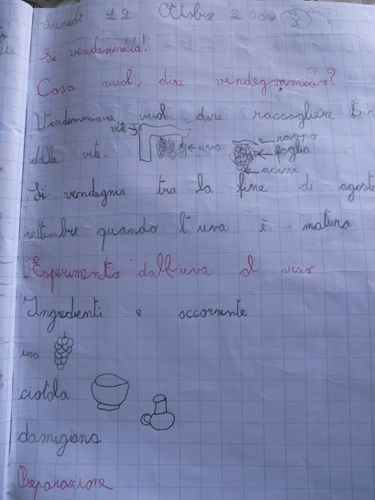 Lunedì 12 Ottobre 2009
Si vendemmia!
Cosa vuol dire vendegmmiare?
Vendemmiare vuol dire raccogliere
dalla vite. vite uva raspo foglia acini
Si vendegmia tra la fine di agosto
settembre quando l'uva è matura
Esperimento dall'uva al vino
Ingredienti e occorrente
uva
ciotola
damigiana
Preparazione